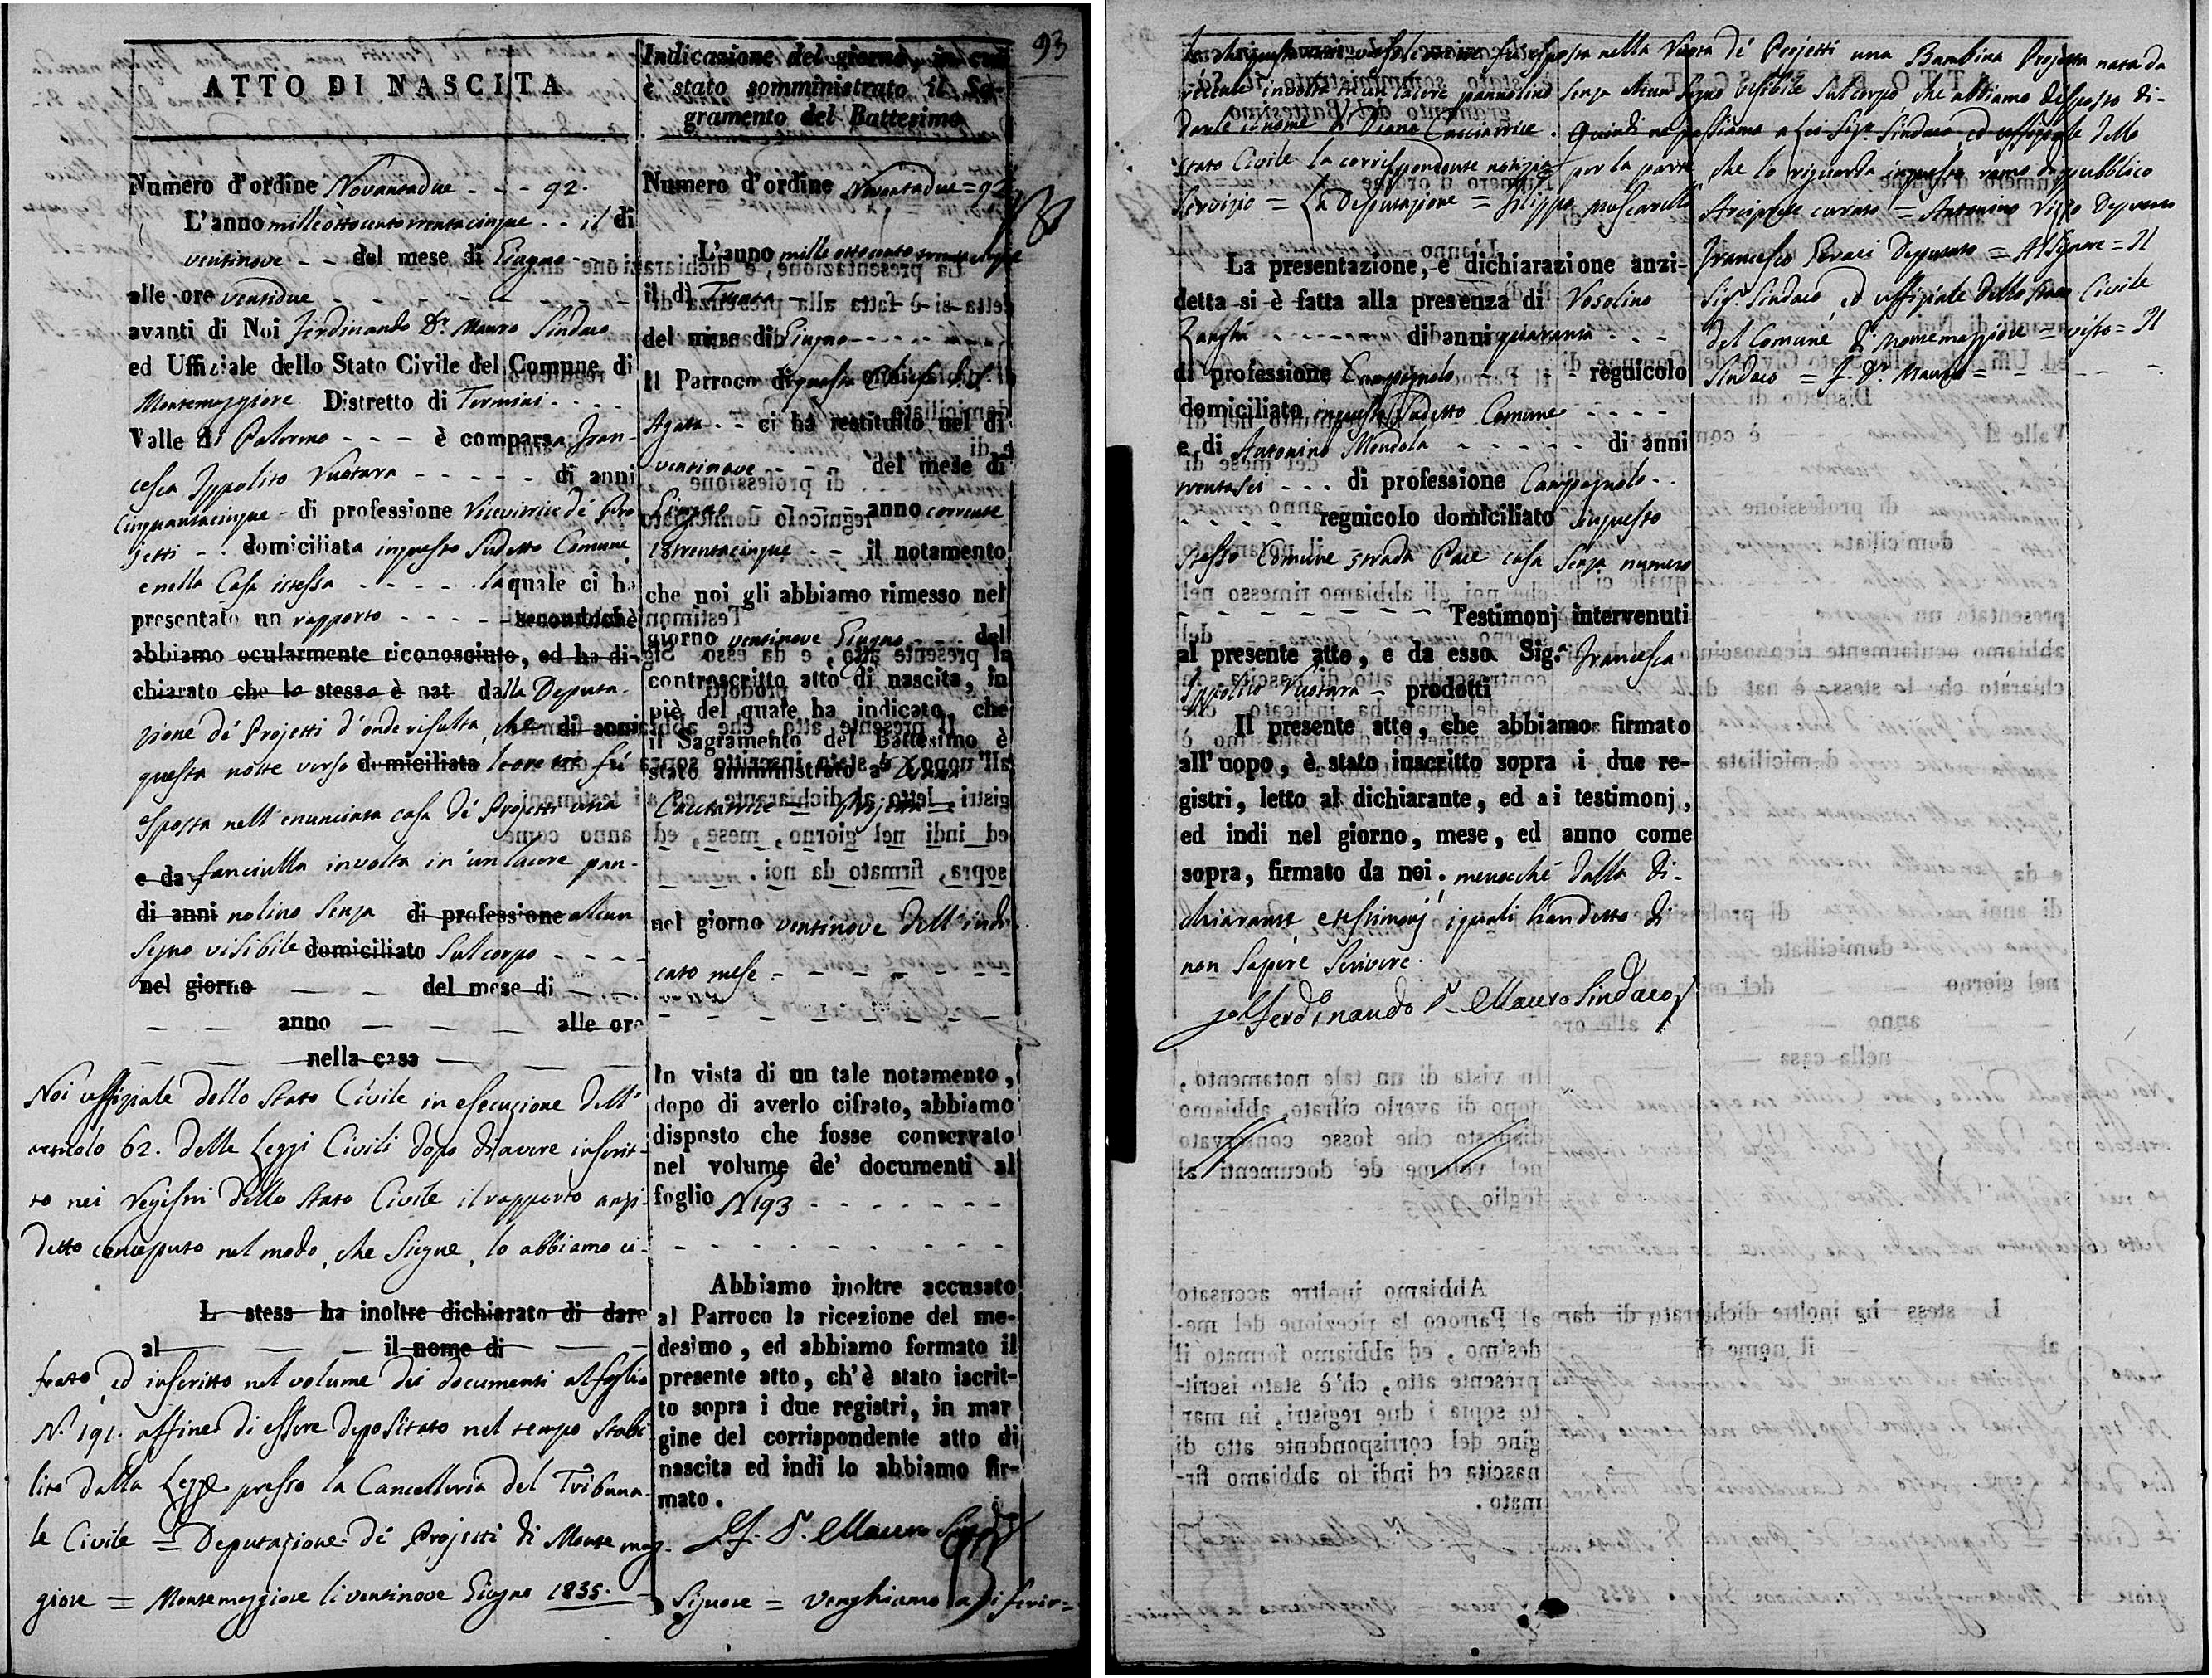 93
ATTO DI NASCITA
Numero d'ordine Novantadue - - - 92.
L'anno mille ottocento trentacinque - - il dì
ventinove - - del mese di Giugno -
alle ore ventidue - - - - - - - -
avanti di Noi Ferdinando Dr. Mauro Sindaco
ed Uffiziale dello Stato Civile del Comune di
Montemaggiore Distretto di Termini - - - -
Valle di Palermo - - - è comparsa Fran-
cesca Ippolito Ruotara - - - - - di anni
Cinquantacinque - di professione Ricevitrice dé Pro
jetti - - domiciliata in questo Sudetto Comune
e nella Casa istessa - - - - - la quale ci ha
presentato un rapporto - - - - - secondochè
abbiamo ocularmente riconosciuto, ed ha di-
chiarato che lo stesso è nat dalla Deputa-
zione dé Projetti d'onde risulta, che di anni
questa notte verso domiciliato le ore tre fù
esposta nell'enunciata casa dé Projetti una
e da fanciulla involta in un lacere pan-
di anni nolino Senza di professione alcun
Segno visibile domiciliato Sul corpo - - - -
nel giorno — — del mese di — —
— — anno — — — alle ore
— — — nella casa — — —
Noi uffiziale dello Stato Civile in esecuzione dell'
articolo 62. delle Leggi Civili dopo di avere inscrit-
to nei Registri dello Stato Civile il rapporto anzi-
detto conceputo nel modo, che Siegue, lo abbiamo ci-
L stess ha inoltre dichiarato di dare
al — — — il nome di — — —
frato, ed inscritto nel volume dei documenti al foglio
N.o 191. affine di essere depositato nel tempo Stabi
lito dalla Legge presso la Cancelleria del Tribuna-
le Civile = Deputazione dé Projetti di Monte mag-
giore = Montemaggiore li ventinove Giugno 1835. -
Indicazione del giorno, in cui
è stato somministrato il Sa-
gramento del Battesimo
Numero d'ordine Novantadue = 92
L'anno mille ottocento trentacinque
il dì Trenta -
del mese di Giugno - - - - -
Il Parroco di questa Chiesa di S.
Agata - - ci ha restituito nel dì
ventinove - - - del mese di
Giugno - - - anno corrente
18trentacinque - - il notamento
che noi gli abbiamo rimesso nel
giorno ventinove Giugno - - - del
controscritto atto di nascita, in
piè del quale ha indicato, che
il Sagramento del Battesimo è
stato amministrato a Diana
Cacciatrice = Projetta =
nel giorno ventinove dell'indi
cato mese - - - - - - -
In vista di un tale notamento,
dopo di averlo cifrato, abbiamo
disposto che fosse conservato
nel volume de' documenti al
foglio N 193 - - - - - - -
Abbiamo inoltre accusato
al Parroco la ricezione del me-
desimo, ed abbiamo formato il
presente atto, ch'è stato iscrit-
to sopra i due registri, in mar
gine del corrispondente atto di
nascita ed indi lo abbiamo fir-
mato.
F. Dr. Mauro Sind
Signore = Venghiamo a riferir =
fu esposta nella Ruota dé Projetti una Bambina Projetta nata da
recente involta in un lacere pannolino Senza alcun Segno visibile Sul corpo, che abbiamo disposto di-
darle il nome di Diana Cacciatrice. Quindi ne passiamo a Lei Sig.r Sindaco, ed uffiziale dello
Stato Civile la corrispondente notizia per la parte, che lo riguarda in questo ramo di pubblico
Servizio = La Deputazione = Filippo Muscarelli Arciprete curato = Antonino Vizzo Deputato
Francesco Geraci Deputato = Al Signore = Il
Sig.r Sindaco, ed uffiziale dello Stato Civile
del Comune di Montemaggiore = visto = Il
Sindaco = F. Dr. Mauro = - - - -
La presentazione, e dichiarazione anzi-
detta si è fatta alla presenza di Rosolino
Zanghi - - - - - di anni quaranta - - -
di professione Campagnolo - - - regnicolo
domiciliato in questo Sudetto Comune - - - -
e di Antonino Mendola - - - - - di anni
trentasei - - - di professione Campagnolo - -
- - - - - regnicolo domiciliato in questo
stesso Comune strada Pace casa Senza numero
- - - - - - - - Testimonj intervenuti
al presente atto, e da essa Sig.a Francesca
Ippolito Ruotara - prodotti
Il presente atto, che abbiamo firmato
all'uopo, è stato inscritto sopra i due re-
gistri, letto al dichiarante, ed ai testimonj,
ed indi nel giorno, mese, ed anno come
sopra, firmato da noi, menocché dalla di-
chiarante, e testimonj i quali han detto di
non Sapere Scrivere.
Ferdinando Dr. Mauro Sindaco